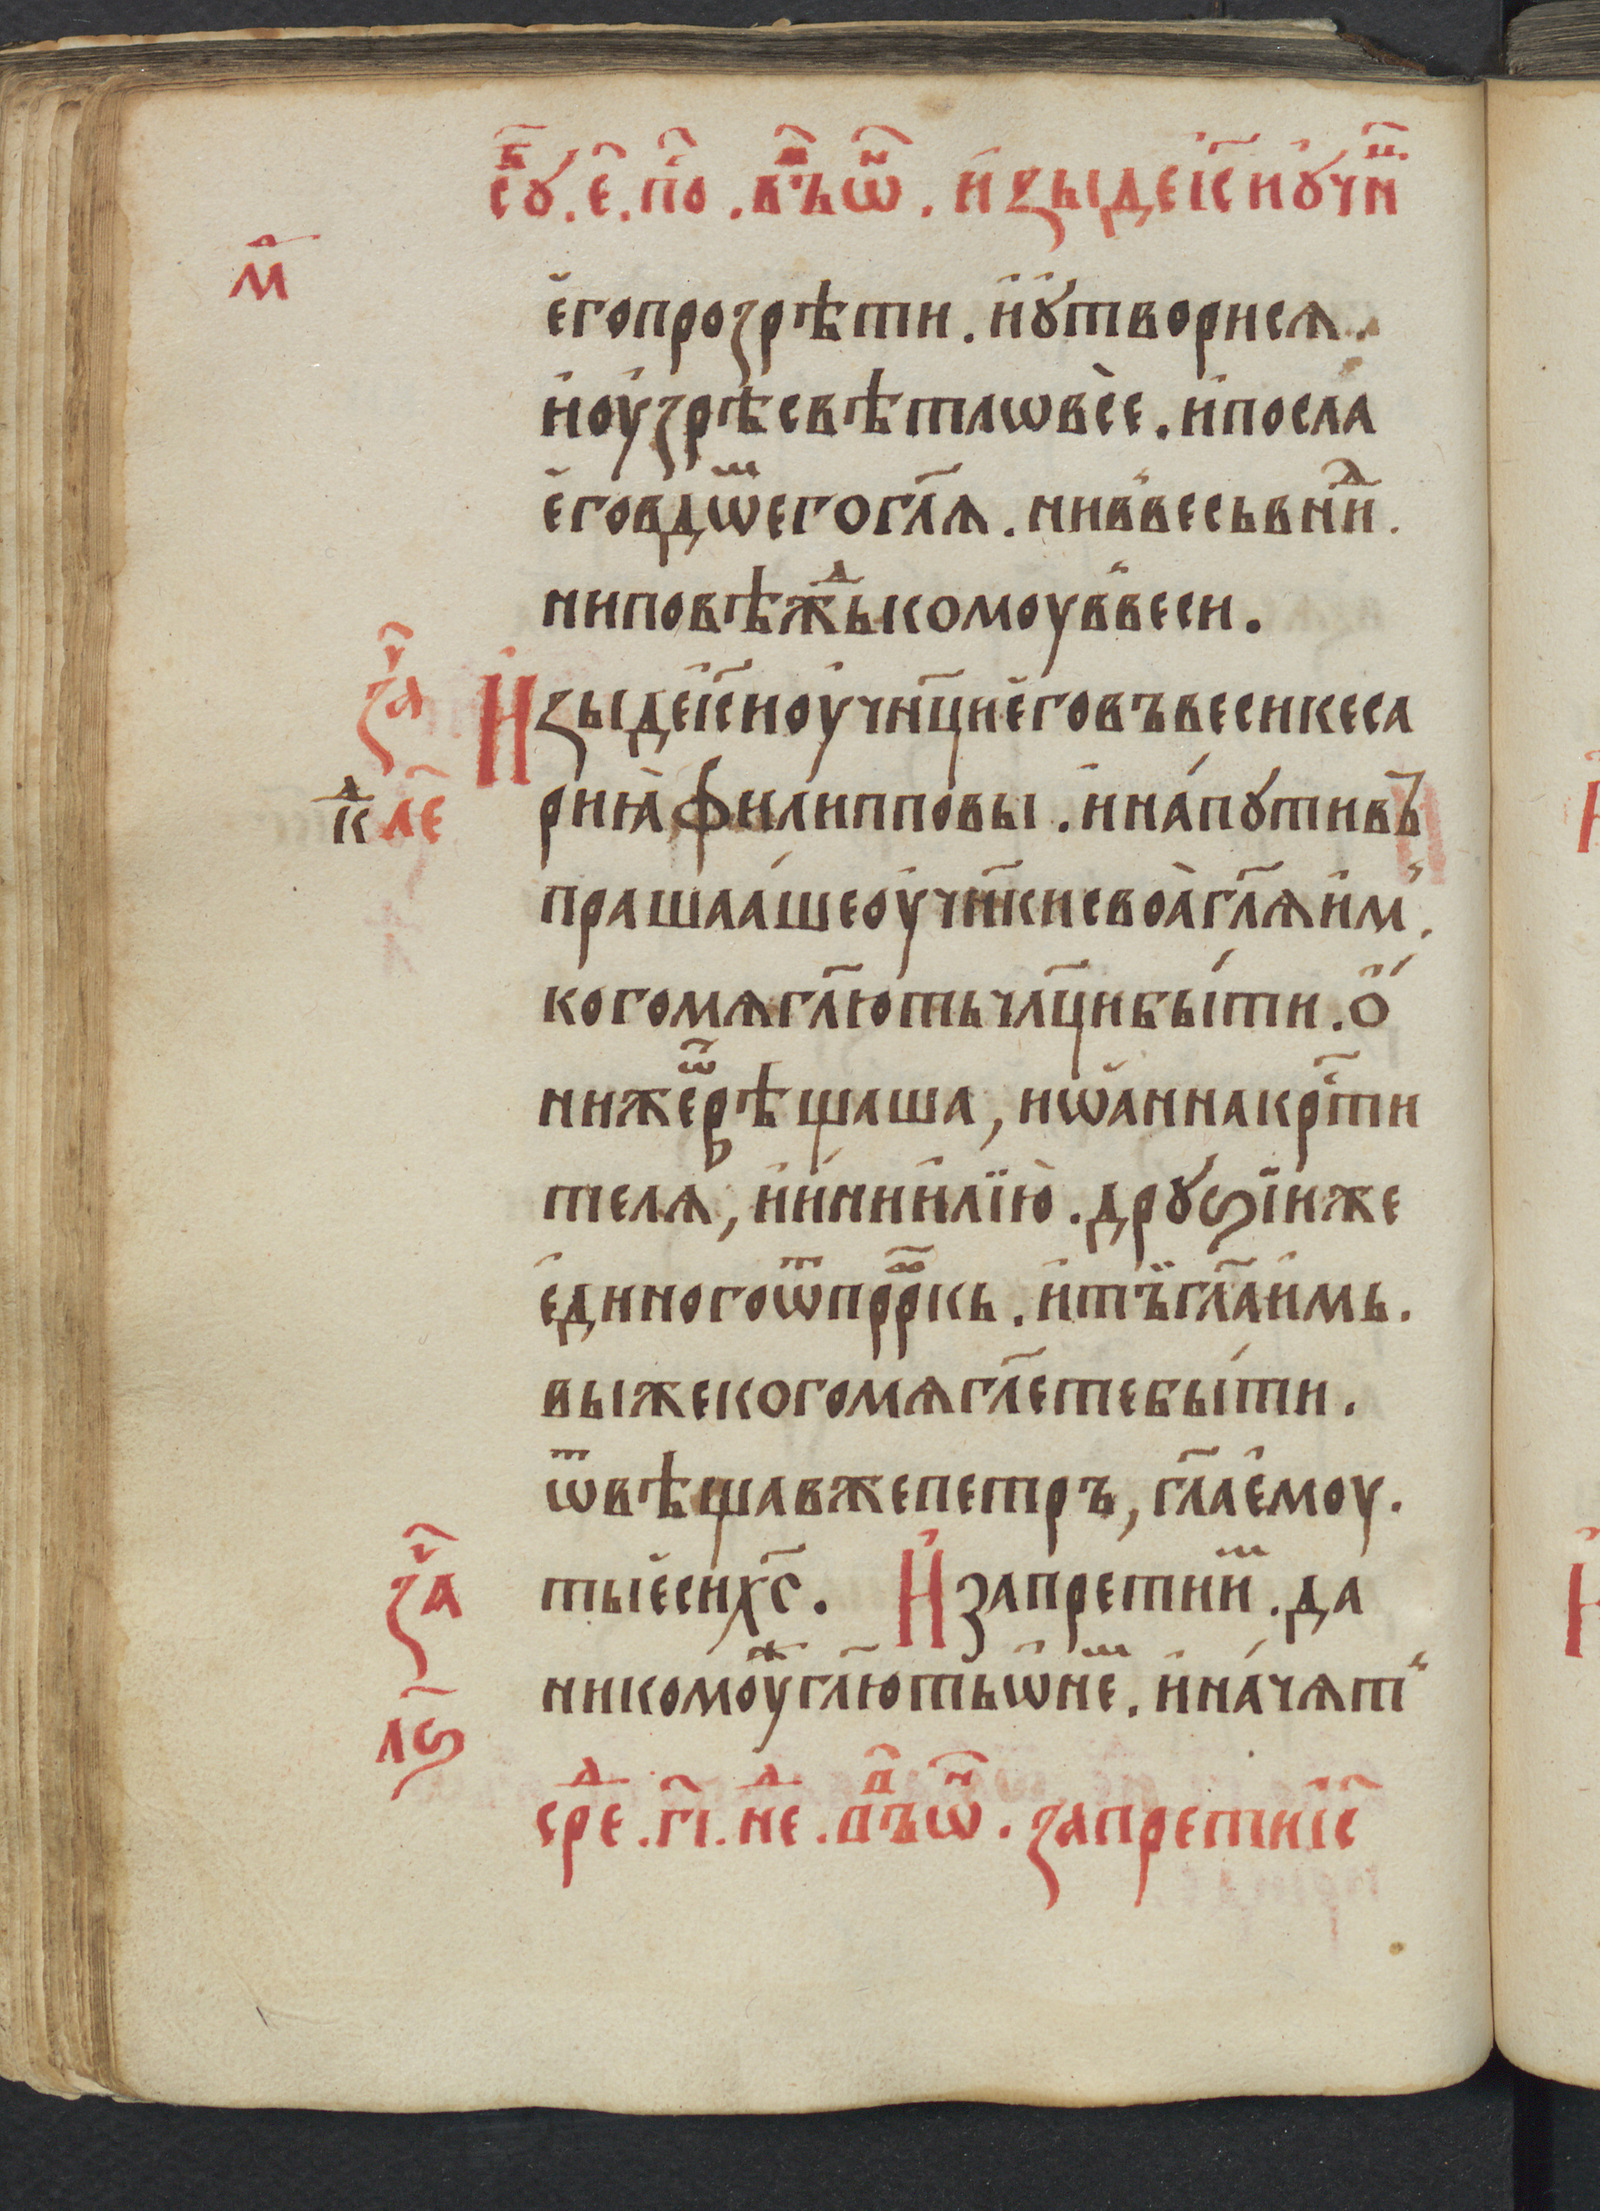 сꙋⷠ҇. е҃. поⷭ҇. въⷬ҇ ѡⷩ҇. и҆зыде і҃с и ᲂучн҃ц
мⷬ҇
е҆го прозрѣти. и҆ ꙋ҆твори сѧ.
и҆ ᲂу҆зрѣ свѣтлѡ всѐ. и҆ посла
е҆го в дѡⷨ е҆го гл҃ѧ. ни в весь вни́ⷣ.
ни повѣжⷣь комоу в веси.
за҃ⷱ
И҆зыде і҃с и ᲂу҆чн҃ци е҆го въ веси кеса
кⷧ л҃е
риѧ̀ филипповы. и҆ на́ пꙋти въ
прашаа́ше ᲂу҆чн҃ки своа̀ гл҃ѧ и҆м.
кого мѧ гл҃ють чл҃ци бы́ти. о҆
ни же ѿрѣщаша, иѡа҆нна кр҃сти
телѧ, и҆ и҆ни и҆лїю̀. дрꙋѕїи же
е҆диного ѿ прⷪ҇ркь. и҆ тъи гл҃а и҆мь.
вы же кого мѧ гл҃ете бы́ти.
ѿвѣщав же петръ, гл҃а е҆моу.
за҃ⷱ
ты е҆си х҃с. И҆ запрети и҆ⷨ. да
никомоуⷤ гл҃ють ѡ҆ неⷨ. и҆ на́чѧт
л҃ѕ
среⷣ. г҃і. неⷣ. въⷬ҇ ѡⷩ҇. запрети і҃с